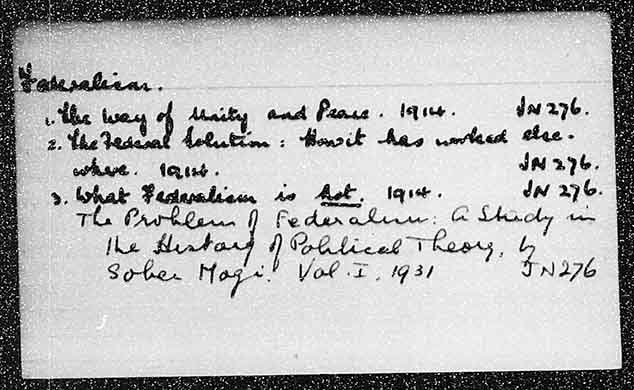 Federalism.
1. The Way of Unity and Peace. 1914. JN276.
2. The Federal Solution: How it has worked else-
where. 1914. JN276.
3. What Federalism is not. 1914. JN276.
The Problem of Federalism: A Study in
the History of Political Theory, by
Sobei Mogi. Vol. I, 1931 JN276